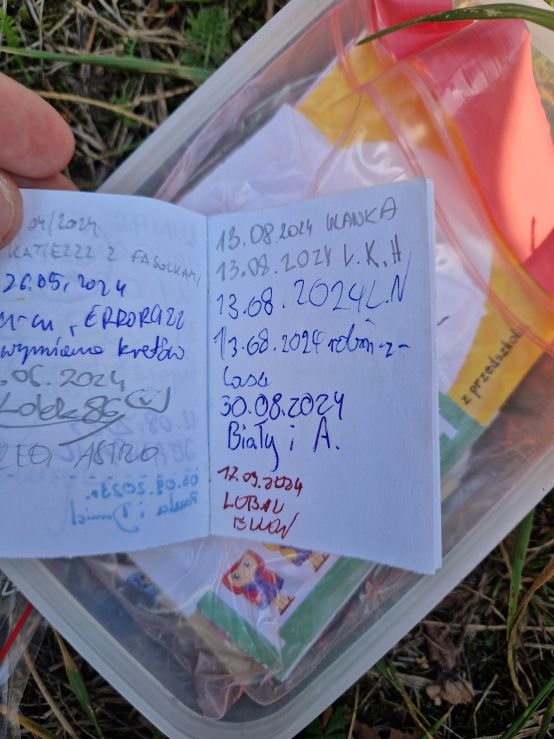 04/2024
KATEZZZ Z FASOLKAMI
26.05.2024
ERRORAZZ
wymiana kretów
.06.2024
Lolek86
ASTRO
03.09.2023r.
i Daniel
13.08.2024 WANKA
13.08.2024 V.K.H
13.08.2024 L.N
13.08.2024 robin-z-
lasu
30.08.2024
Biały i A.
12.09.2024
z przedszkol